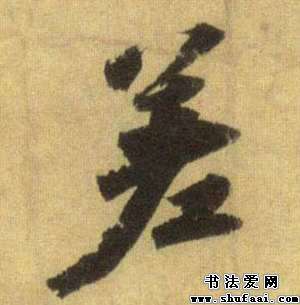 差
书法爱网
www.shufaai.com